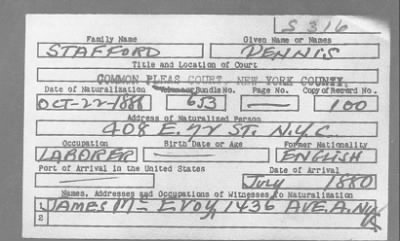 S 316
Family Name Given Name or Names
STAFFORD DENNIS
Title and Location of Court
COMMON PLEAS COURT, NEW YORK COUNTY.
Date of Naturalization Volume or Bundle No. Page No. Copy of Record No.
OCT-22-1888 653 — 100
Address of Naturalized Person
408 E. ST. N.Y.C
Occupation Birth Date or Age Former Nationality
LABORER — ENGLISH
Port of Arrival in the United States Date of Arrival
— July 1880
Names, Addresses and Occupations of Witnesses to Naturalization
1 JAMES Mc EVOY, 1436 AVE. A. N.Y.
2